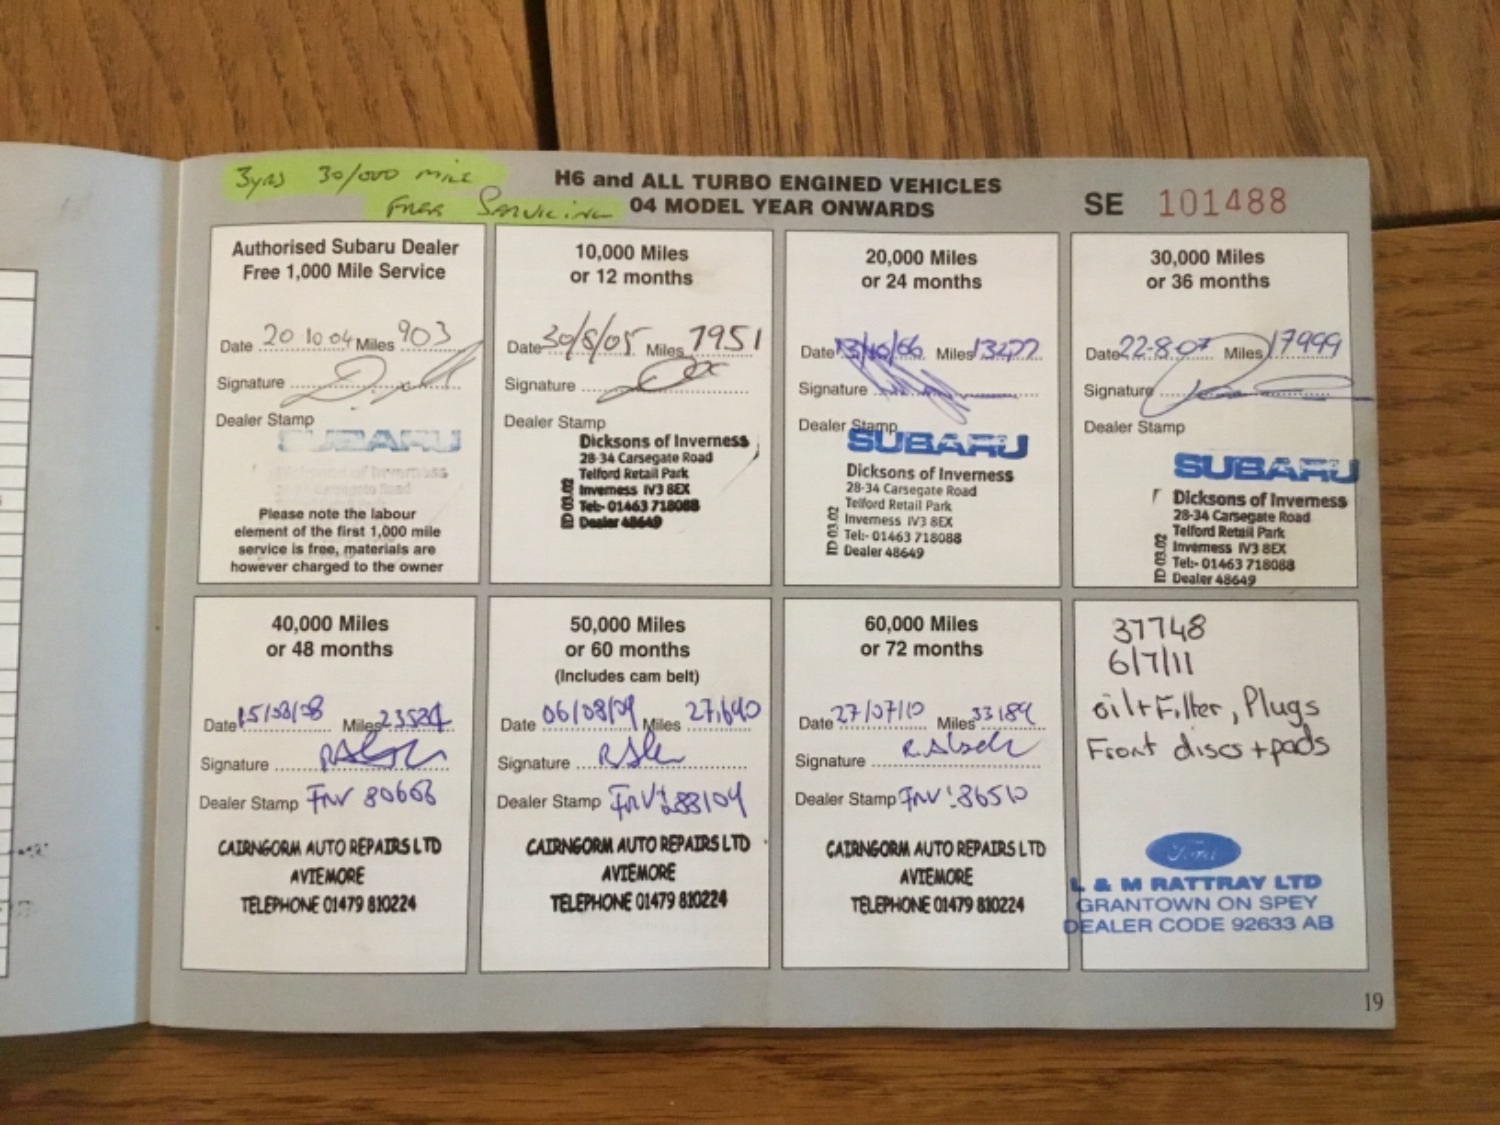 3yrs 30/000 mile
Free Servicing
H6 and ALL TURBO ENGINED VEHICLES
04 MODEL YEAR ONWARDS
SE 101488
Authorised Subaru Dealer
Free 1,000 Mile Service
Date 20 10 04 Miles 903
Signature
Dealer Stamp
SUBARU
Dicksons of Inverness
28-34 Carsegate Road
Please note the labour
element of the first 1,000 mile
service is free, materials are
however charged to the owner
10,000 Miles
or 12 months
Date 30/8/05 Miles 7951
Signature
Dealer Stamp
Dicksons of Inverness
28-34 Carsegate Road
Telford Retail Park
Inverness IV3 8EX
Tel:- 01463 718088
Dealer 48649
ID 03.02
20,000 Miles
or 24 months
Date 13/10/06 Miles 13477
Signature
Dealer Stamp
SUBARU
Dicksons of Inverness
28-34 Carsegate Road
Telford Retail Park
Inverness IV3 8EX
Tel:- 01463 718088
Dealer 48649
ID 03.02
30,000 Miles
or 36 months
Date 22-8-07 Miles 17999
Signature
Dealer Stamp
SUBARU
Dicksons of Inverness
28-34 Carsegate Road
Telford Retail Park
Inverness IV3 8EX
Tel:- 01463 718088
Dealer 48649
ID 03.02
40,000 Miles
or 48 months
Date 15/08/08 Miles 23524
Signature
Dealer Stamp INV 80666
CAIRNGORM AUTO REPAIRS LTD
AVIEMORE
TELEPHONE 01479 810224
50,000 Miles
or 60 months
(Includes cam belt)
Date 06/08/09 Miles 27,640
Signature
Dealer Stamp INV: 83104
CAIRNGORM AUTO REPAIRS LTD
AVIEMORE
TELEPHONE 01479 810224
60,000 Miles
or 72 months
Date 27/07/10 Miles 33189
Signature
Dealer Stamp INV: 86510
CAIRNGORM AUTO REPAIRS LTD
AVIEMORE
TELEPHONE 01479 810224
37748
6/7/11
oil+Filter, Plugs
Front discs+pads
Ford
L & M RATTRAY LTD
GRANTOWN ON SPEY
DEALER CODE 92633 AB
19